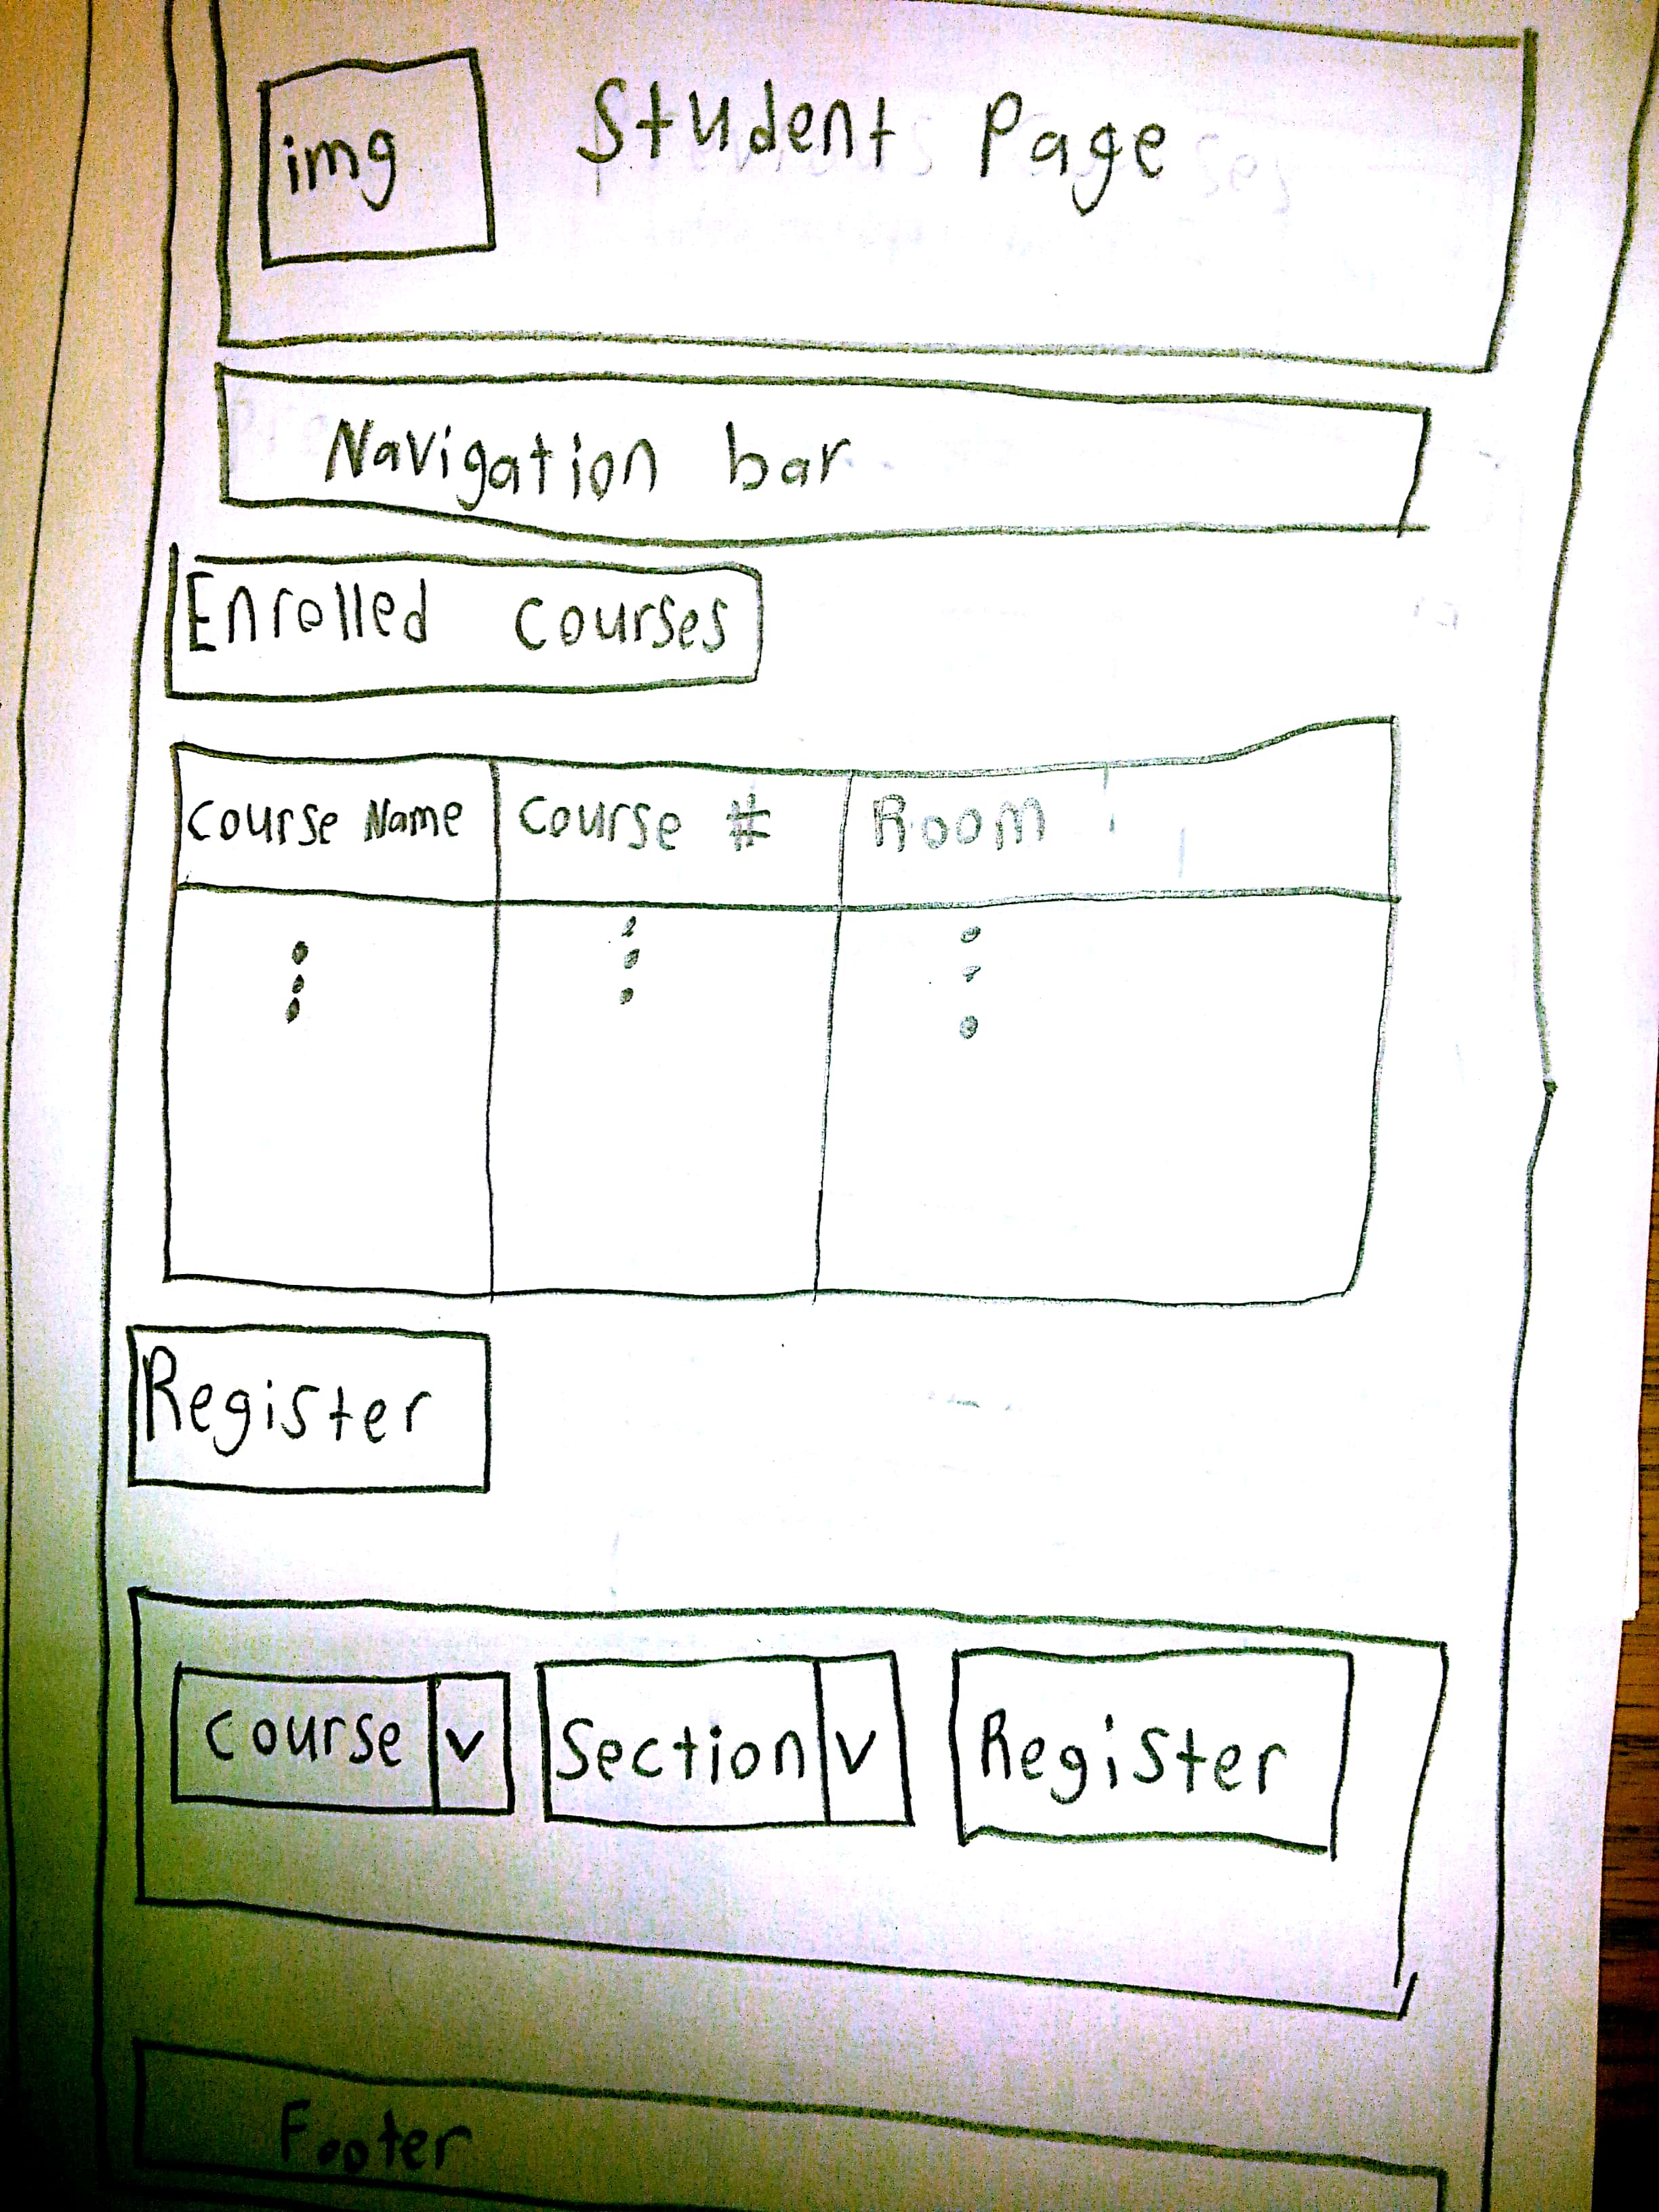 img
Student Page
Navigation bar
Enrolled courses
Course Name
Course #
Room
Register
Course v
Section v
Register
Footer